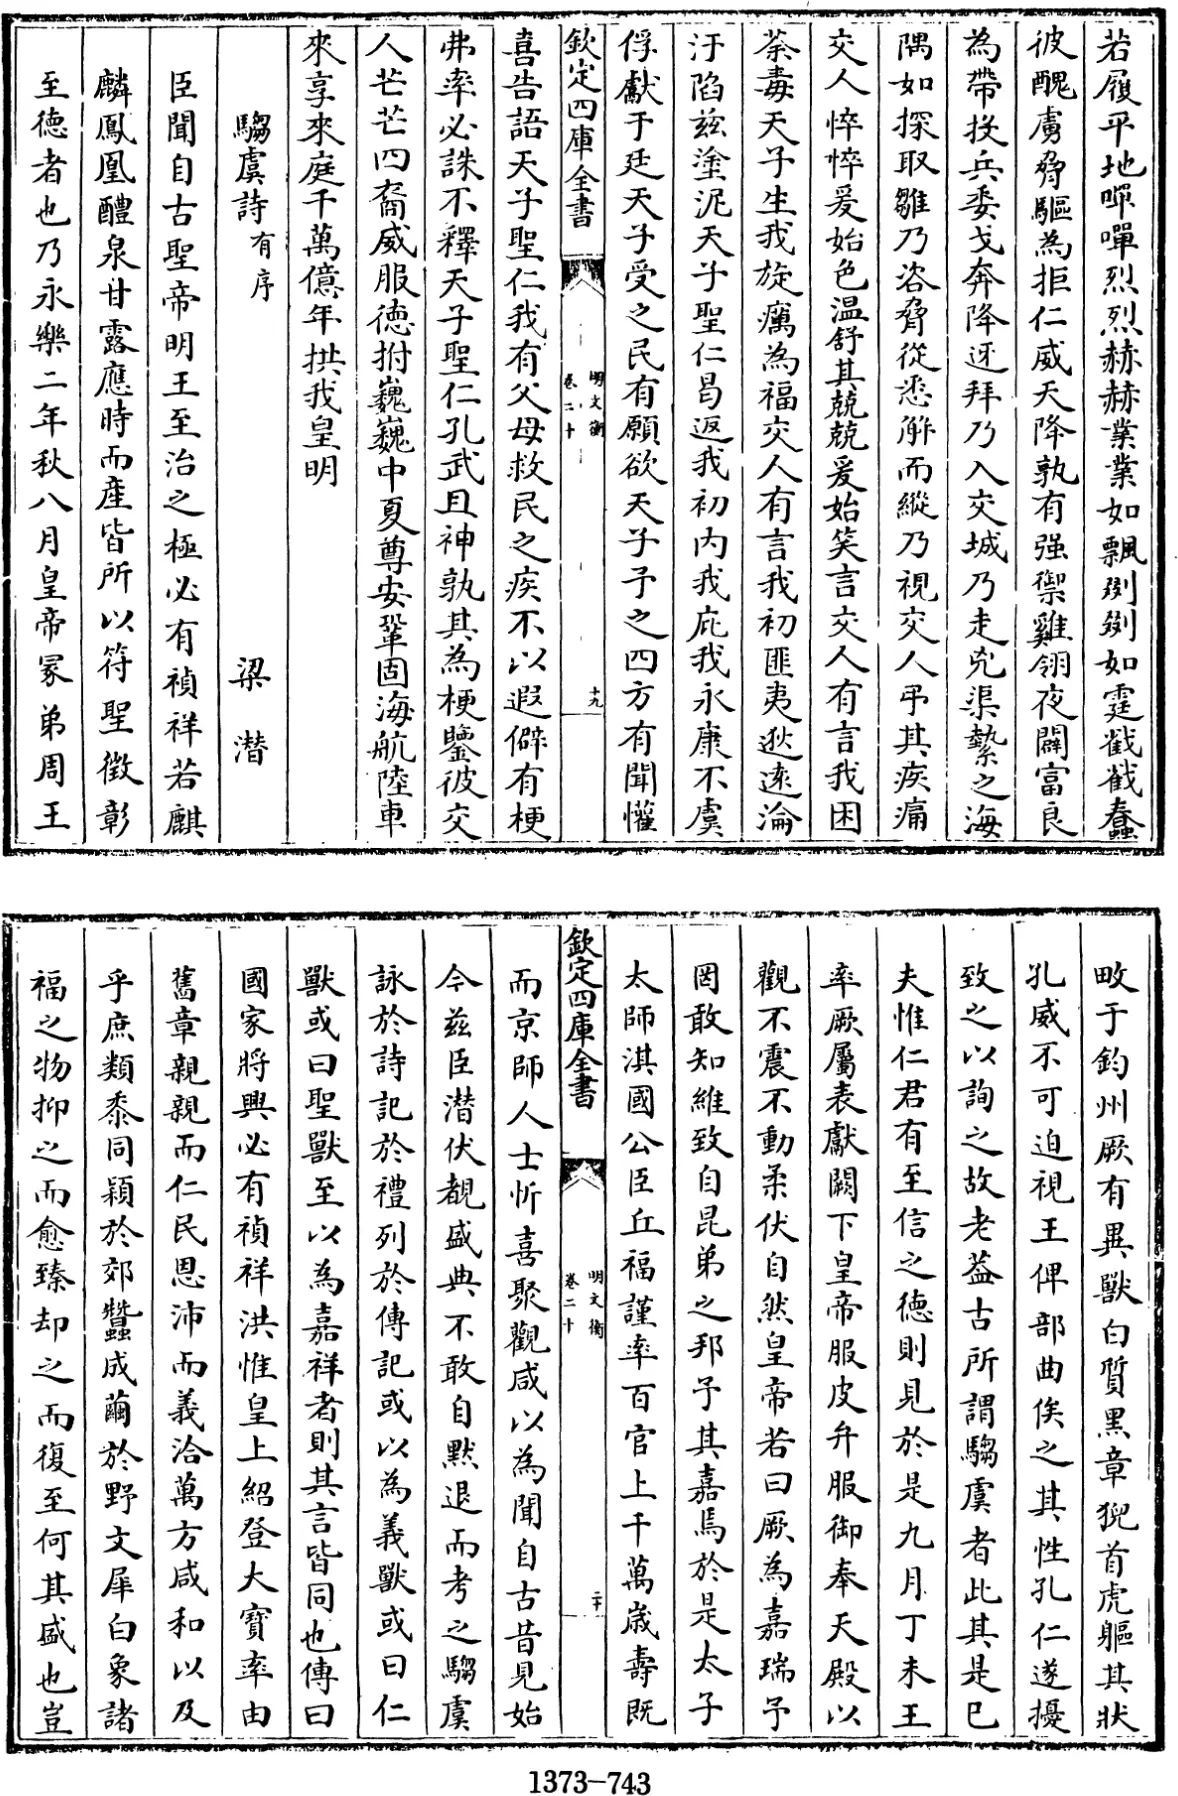 若履平地嘽嘽烈烈赫赫業業如飄剡剡如霆截截蠢
彼醜虜脅驅為拒仁威天降孰有强禦雞翎夜闢富良
為帶投兵委戈奔降迓拜乃入交城乃走兇渠縶之海
隅如探取雛乃咨脅從悉觧而縱乃視交人弔其疾痛
交人悴悴爰始色温舒其兢兢爰始笑言交人有言我困
荼毒天子生我旋癘為福交人有言我初匪夷逖逺淪
汙陷兹塗泥天子聖仁曷返我初内我庇我永康不虞
俘獻于廷天子受之民有願欲天子予之四方有聞懽
欽定四庫全書
明文衡
卷二十
十九
喜告語天子聖仁我有父母救民之疾不以遐僻有梗
弗率必誅不釋天子聖仁孔武且神孰其為梗鑒彼交
人芒芒四裔威服徳拊巍巍中夏尊安鞏固海航陸車
來享來庭千萬億年拱我皇明
騶虞詩有序
梁潜
臣聞自古聖帝明王至治之極必有禎祥若麒
麟鳳凰醴泉甘露應時而産皆所以符聖徴彰
至徳者也乃永樂二年秋八月皇帝冡弟周王
畋于鈞州厥有異獸白質黑章猊首虎軀其狀
孔威不可迫視王俾部曲俟之其性孔仁遂擾
致之以詢之故老葢古所謂騶虞者此其是巳
夫惟仁君有至信之徳則見於是九月丁未王
率厥屬表獻闕下皇帝服皮弁服御奉天殿以
觀不震不動柔伏自然皇帝若曰厥為嘉瑞予
罔敢知維致自昆弟之邦予其嘉焉於是太子
太師淇國公臣丘福謹率百官上千萬嵗壽既
欽定四庫全書
明文衡
卷二十
二十
而京師人士忻喜聚觀咸以為聞自古昔見始
今兹臣潜伏覩盛典不敢自黙退而考之騶虞
詠於詩記於禮列於傳記或以為義獸或曰仁
獸或曰聖獸至以為嘉祥者則其言皆同也傳曰
國家將興必有禎祥洪惟皇上紹登大寳率由
舊章親親而仁民恩沛而義洽萬方咸和以及
乎庶類黍同穎於郊蠶成繭於野文犀白象諸
福之物抑之而愈臻却之而復至何其盛也豈
1373-743